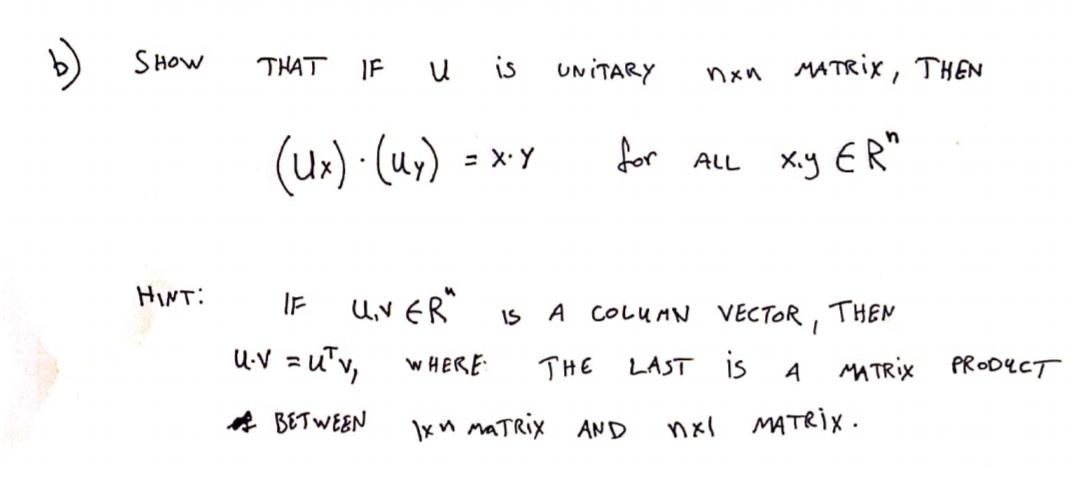 b) SHOW THAT IF U is UNiTARY nxn MATRiX, THEN
(Ux)·(Uy) = x·y for ALL x,y ∈ Rⁿ
HINT: IF u,v ∈ Rⁿ IS A COLUMN VECTOR, THEN
u·v = uᵀv, WHERE THE LAST is A MATRiX PRODUCT
BETWEEN 1xn MATRiX AND nx1 MATRiX.